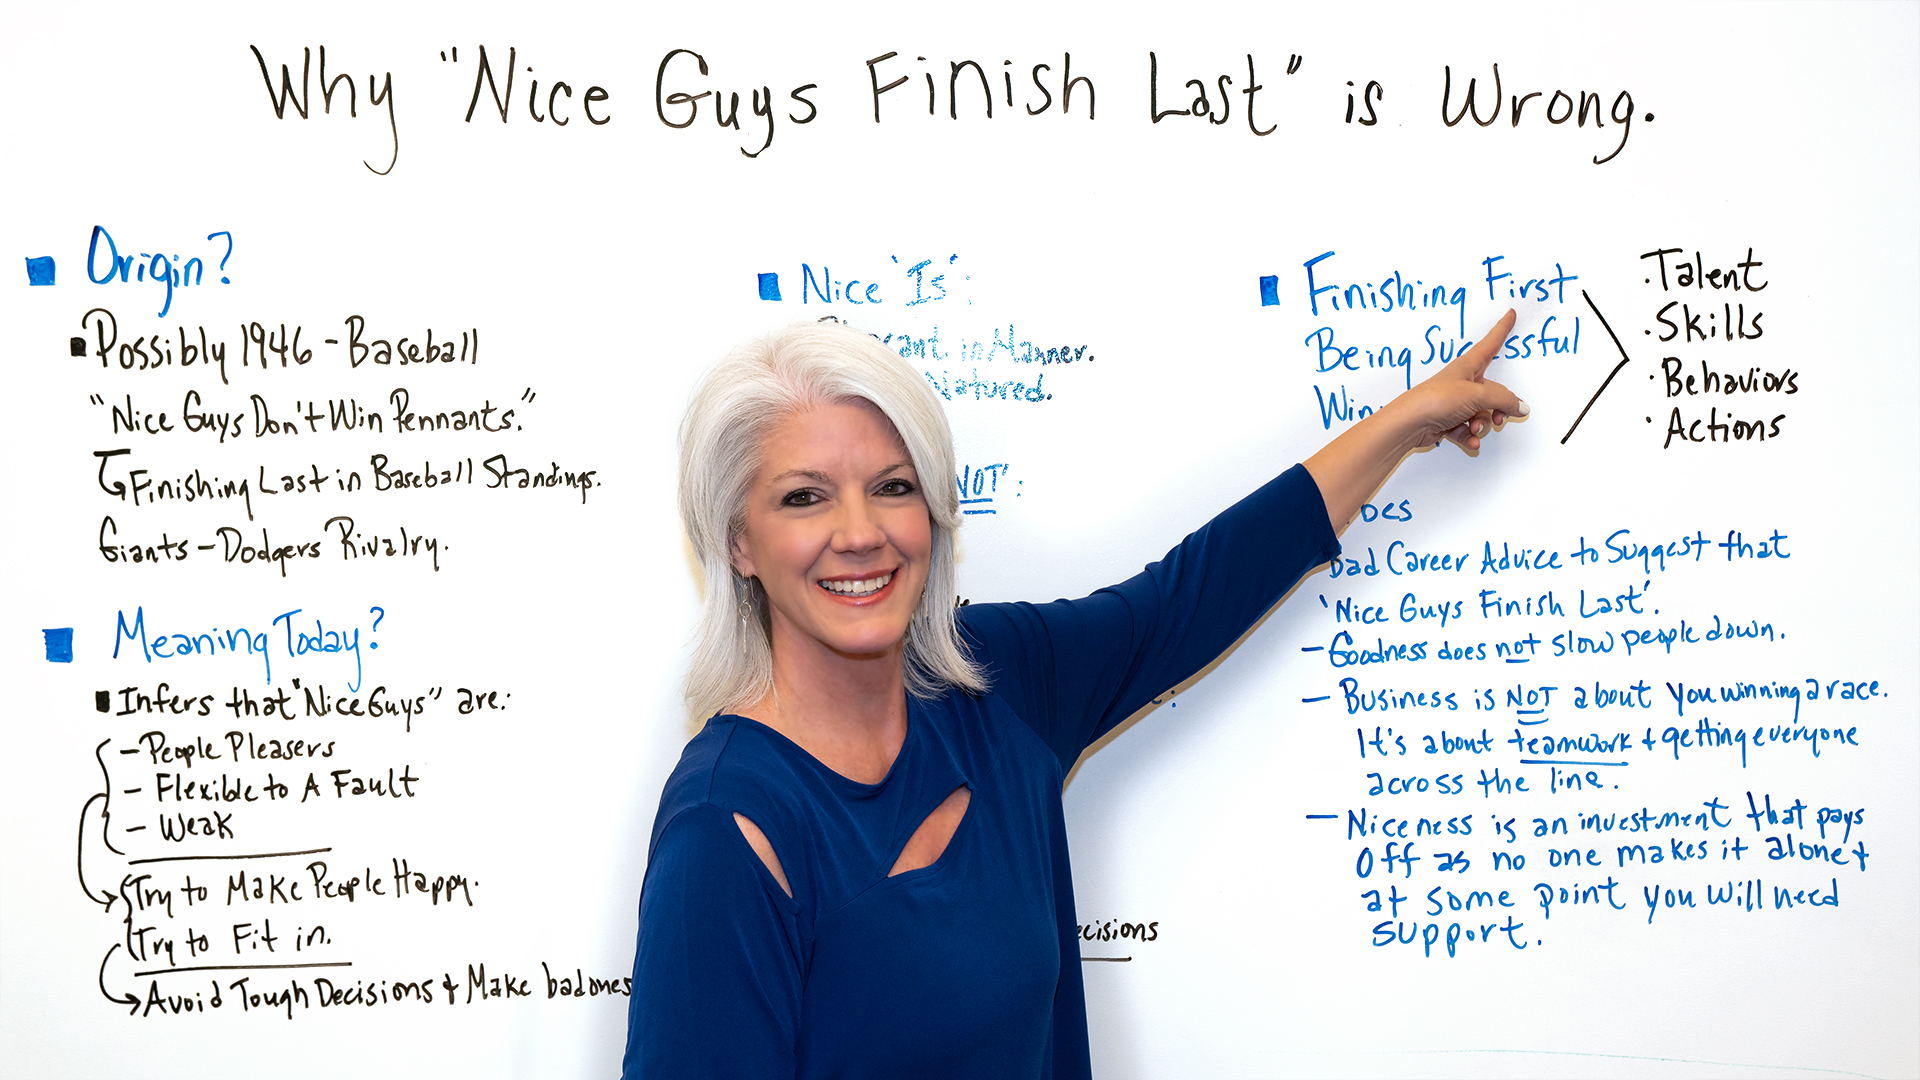 Why "Nice Guys Finish Last" is Wrong.
Origin?
Possibly 1946 - Baseball
"Nice Guys Don't Win Pennants."
Finishing Last in Baseball Standings.
Giants - Dodgers Rivalry.
Meaning Today?
Infers that "Nice Guys" are:
- People Pleasers
- Flexible to A Fault
- Weak
Try to Make People Happy.
Try to Fit in.
Avoid Tough Decisions & Make bad ones
Nice 'Is':
in Manner.
Natured.
NOT':
ecisions
Finishing First
Being Successful
Win
· Talent
· Skills
· Behaviors
· Actions
oes
Bad Career Advice to Suggest that
'Nice Guys Finish Last'.
- Goodness does not slow people down.
- Business is NOT about you winning a race.
It's about teamwork + getting everyone
across the line.
- Niceness is an investment that pays
Off as no one makes it alone +
at some point you will need
support.